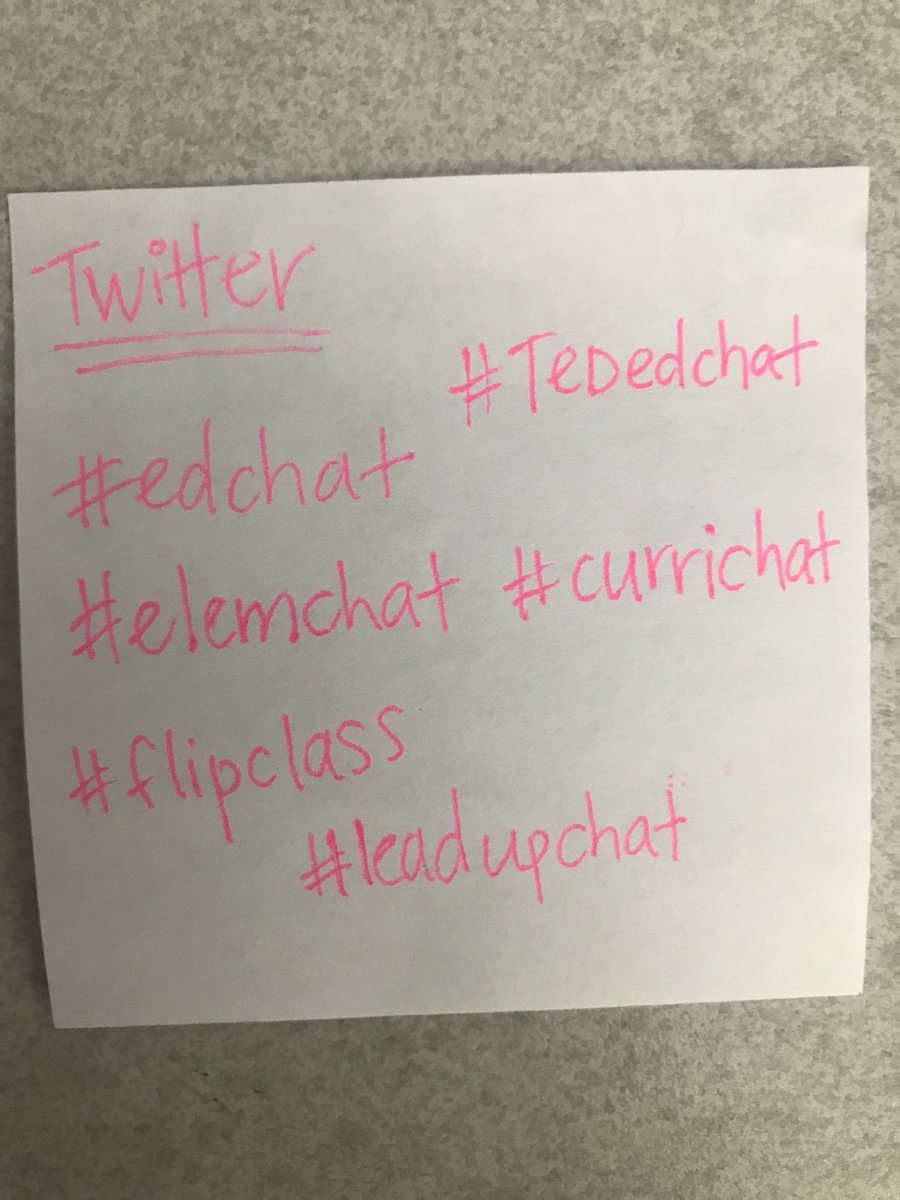 Twitter
#TeDedchat
#edchat
#elemchat #currichat
#flipclass
#leadupchat